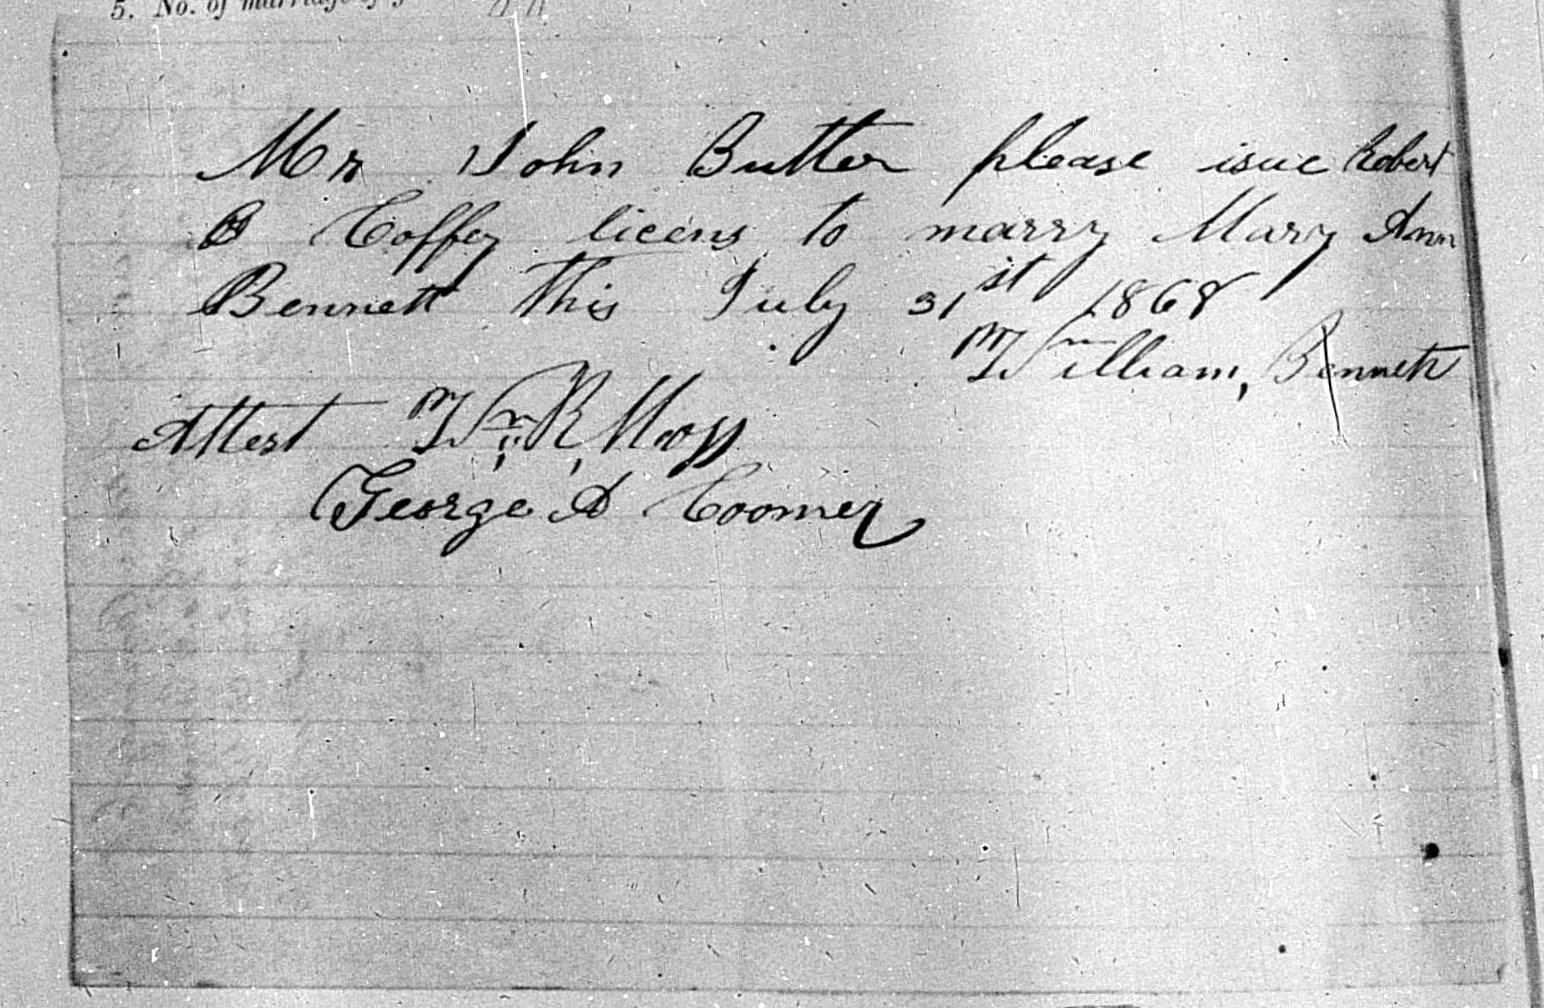 5. No. of marriage of
Mr John Butler please isue Robert
B Coffey licens to marry Mary Ann
Bennett this July 31st 1868
William, Bennett
Attest Wm R, Moss
George A Coomer